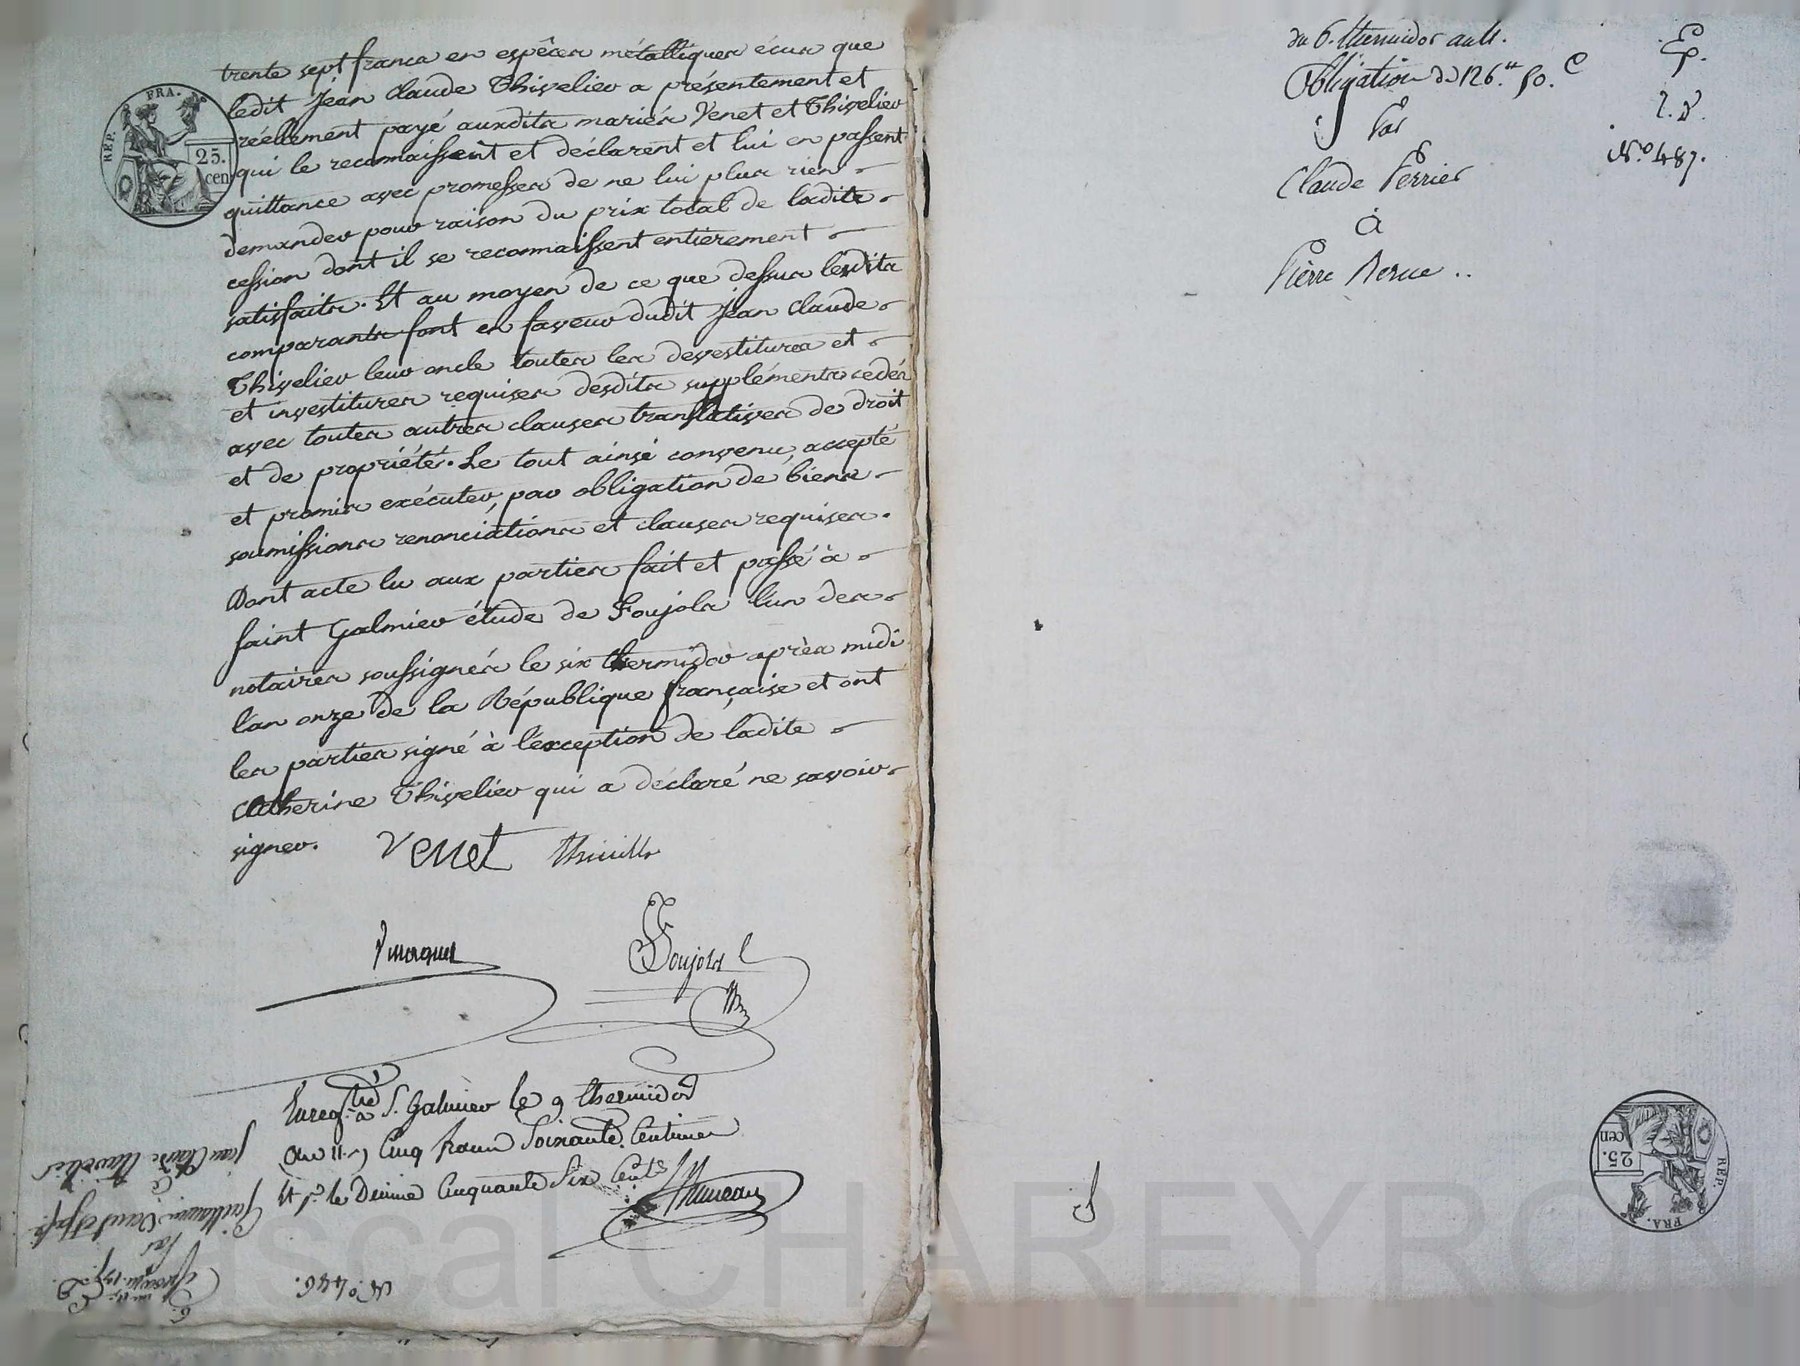 trente sept francs en espèces métalliques écus que
ledit Jean Claude Thivelier a présentement et
réellement payé auxdits mariés Venet et Thivelier
qui le reconnaissent et déclarent et lui en passent
quittance avec promesses de ne lui plus rien
demander pour raison du prix total de ladite
cession dont il se reconnaissent entièrement
satisfaits. Et au moyen de ce que dessus lesdits
comparants font en faveur dudit Jean Claude
Thivelier leur oncle toutes les devestitures et
et investitures requises desdits suppléments cédés
avec toutes autres clauses translatives de droit
et de propriété. Le tout ainsi convenu, accepté
et promis exécuter, par obligation de biens
soumissions renonciations et clauses requises.
Dont acte lu aux parties fait et passé à
Saint Galmier étude de Foujols l'un des
notaires soussignés le six thermidor après midi
l'an onze de la République française et ont
les parties signé à l'exception de ladite
Catherine Thivelier qui a déclaré ne savoir
signer. Venet
Foujols
Enregtré à S. Galmier le 9 thermidor
an 11. Cinq francs Soixante Centimes
Et pr. le Dixme Cinquante Six Cents
Jean Claude Thivelier
Guillaume Venet
Par
N.° 446.
REP. FRA.
25.
cen
du 6. thermidor an 11.
Obligation de 126.tt 50.c
Par
Claude Perrier
à
Pierre
N.° 487.
REP. FRA.
25.
cen
Pascal CHAREYRON